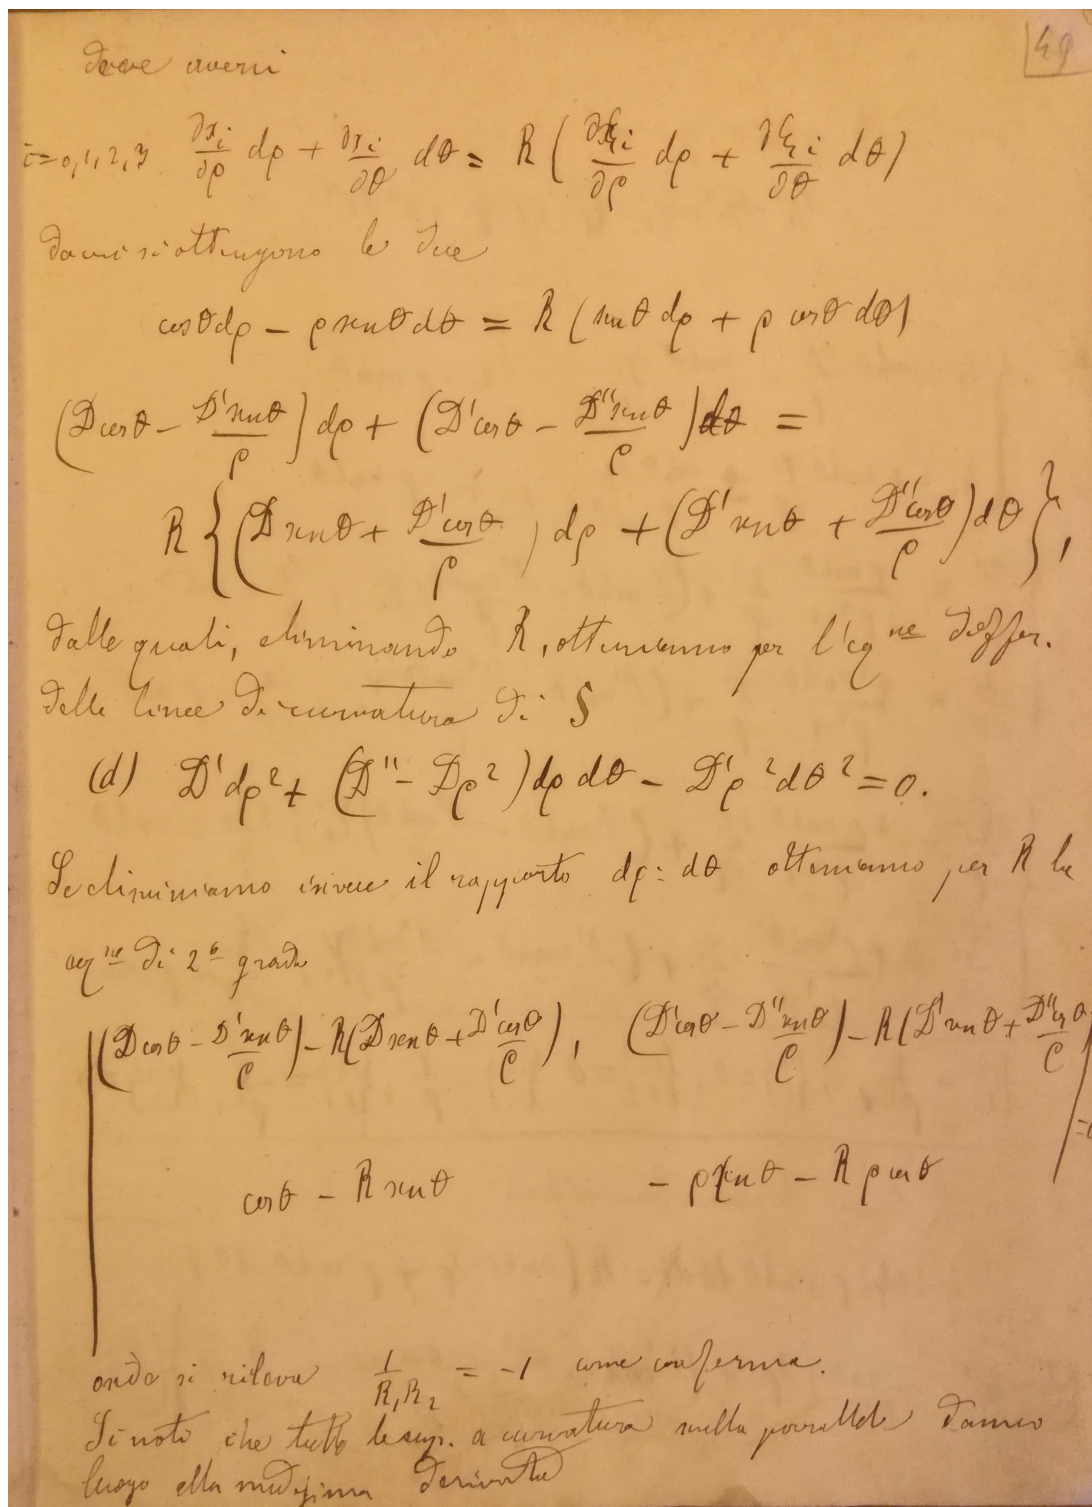 49
deve aversi
i=0,1,2,3 ∂x_i/∂ρ dρ + ∂x_i/∂θ dθ = R (∂ξ_i/∂ρ dρ + ∂ξ_i/∂θ dθ)
si ottengono le due
cosθ dρ − ρ senθ dθ = R (senθ dρ + ρ cosθ dθ)
(D cosθ − D' senθ/ρ) dρ + (D' cosθ − D'' senθ/ρ) dθ =
R {(D senθ + D' cosθ/ρ) dρ + (D' senθ + D'' cosθ/ρ) dθ},
dalle quali, eliminando R, otteniamo per l'eq^ne differ.
delle linee di curvatura di S
(d) D' dρ² + (D'' − Dρ²) dρ dθ − D'ρ² dθ² = 0.
Se eliminiamo invece il rapporto dρ : dθ otteniamo per R la
eq^ne di 2º grado
|(D cosθ − D' senθ/ρ) − R(D senθ + D' cosθ/ρ), (D' cosθ − D'' senθ/ρ) − R(D' senθ + D'' cosθ/ρ)| =
cosθ − R senθ − ρ senθ − R ρ cosθ
onde si rileva 1/R₁R₂ = −1 come conferma.
Si noti che tutte le sup. a curvatura nulla parallele danno
luogo alla medesima derivata